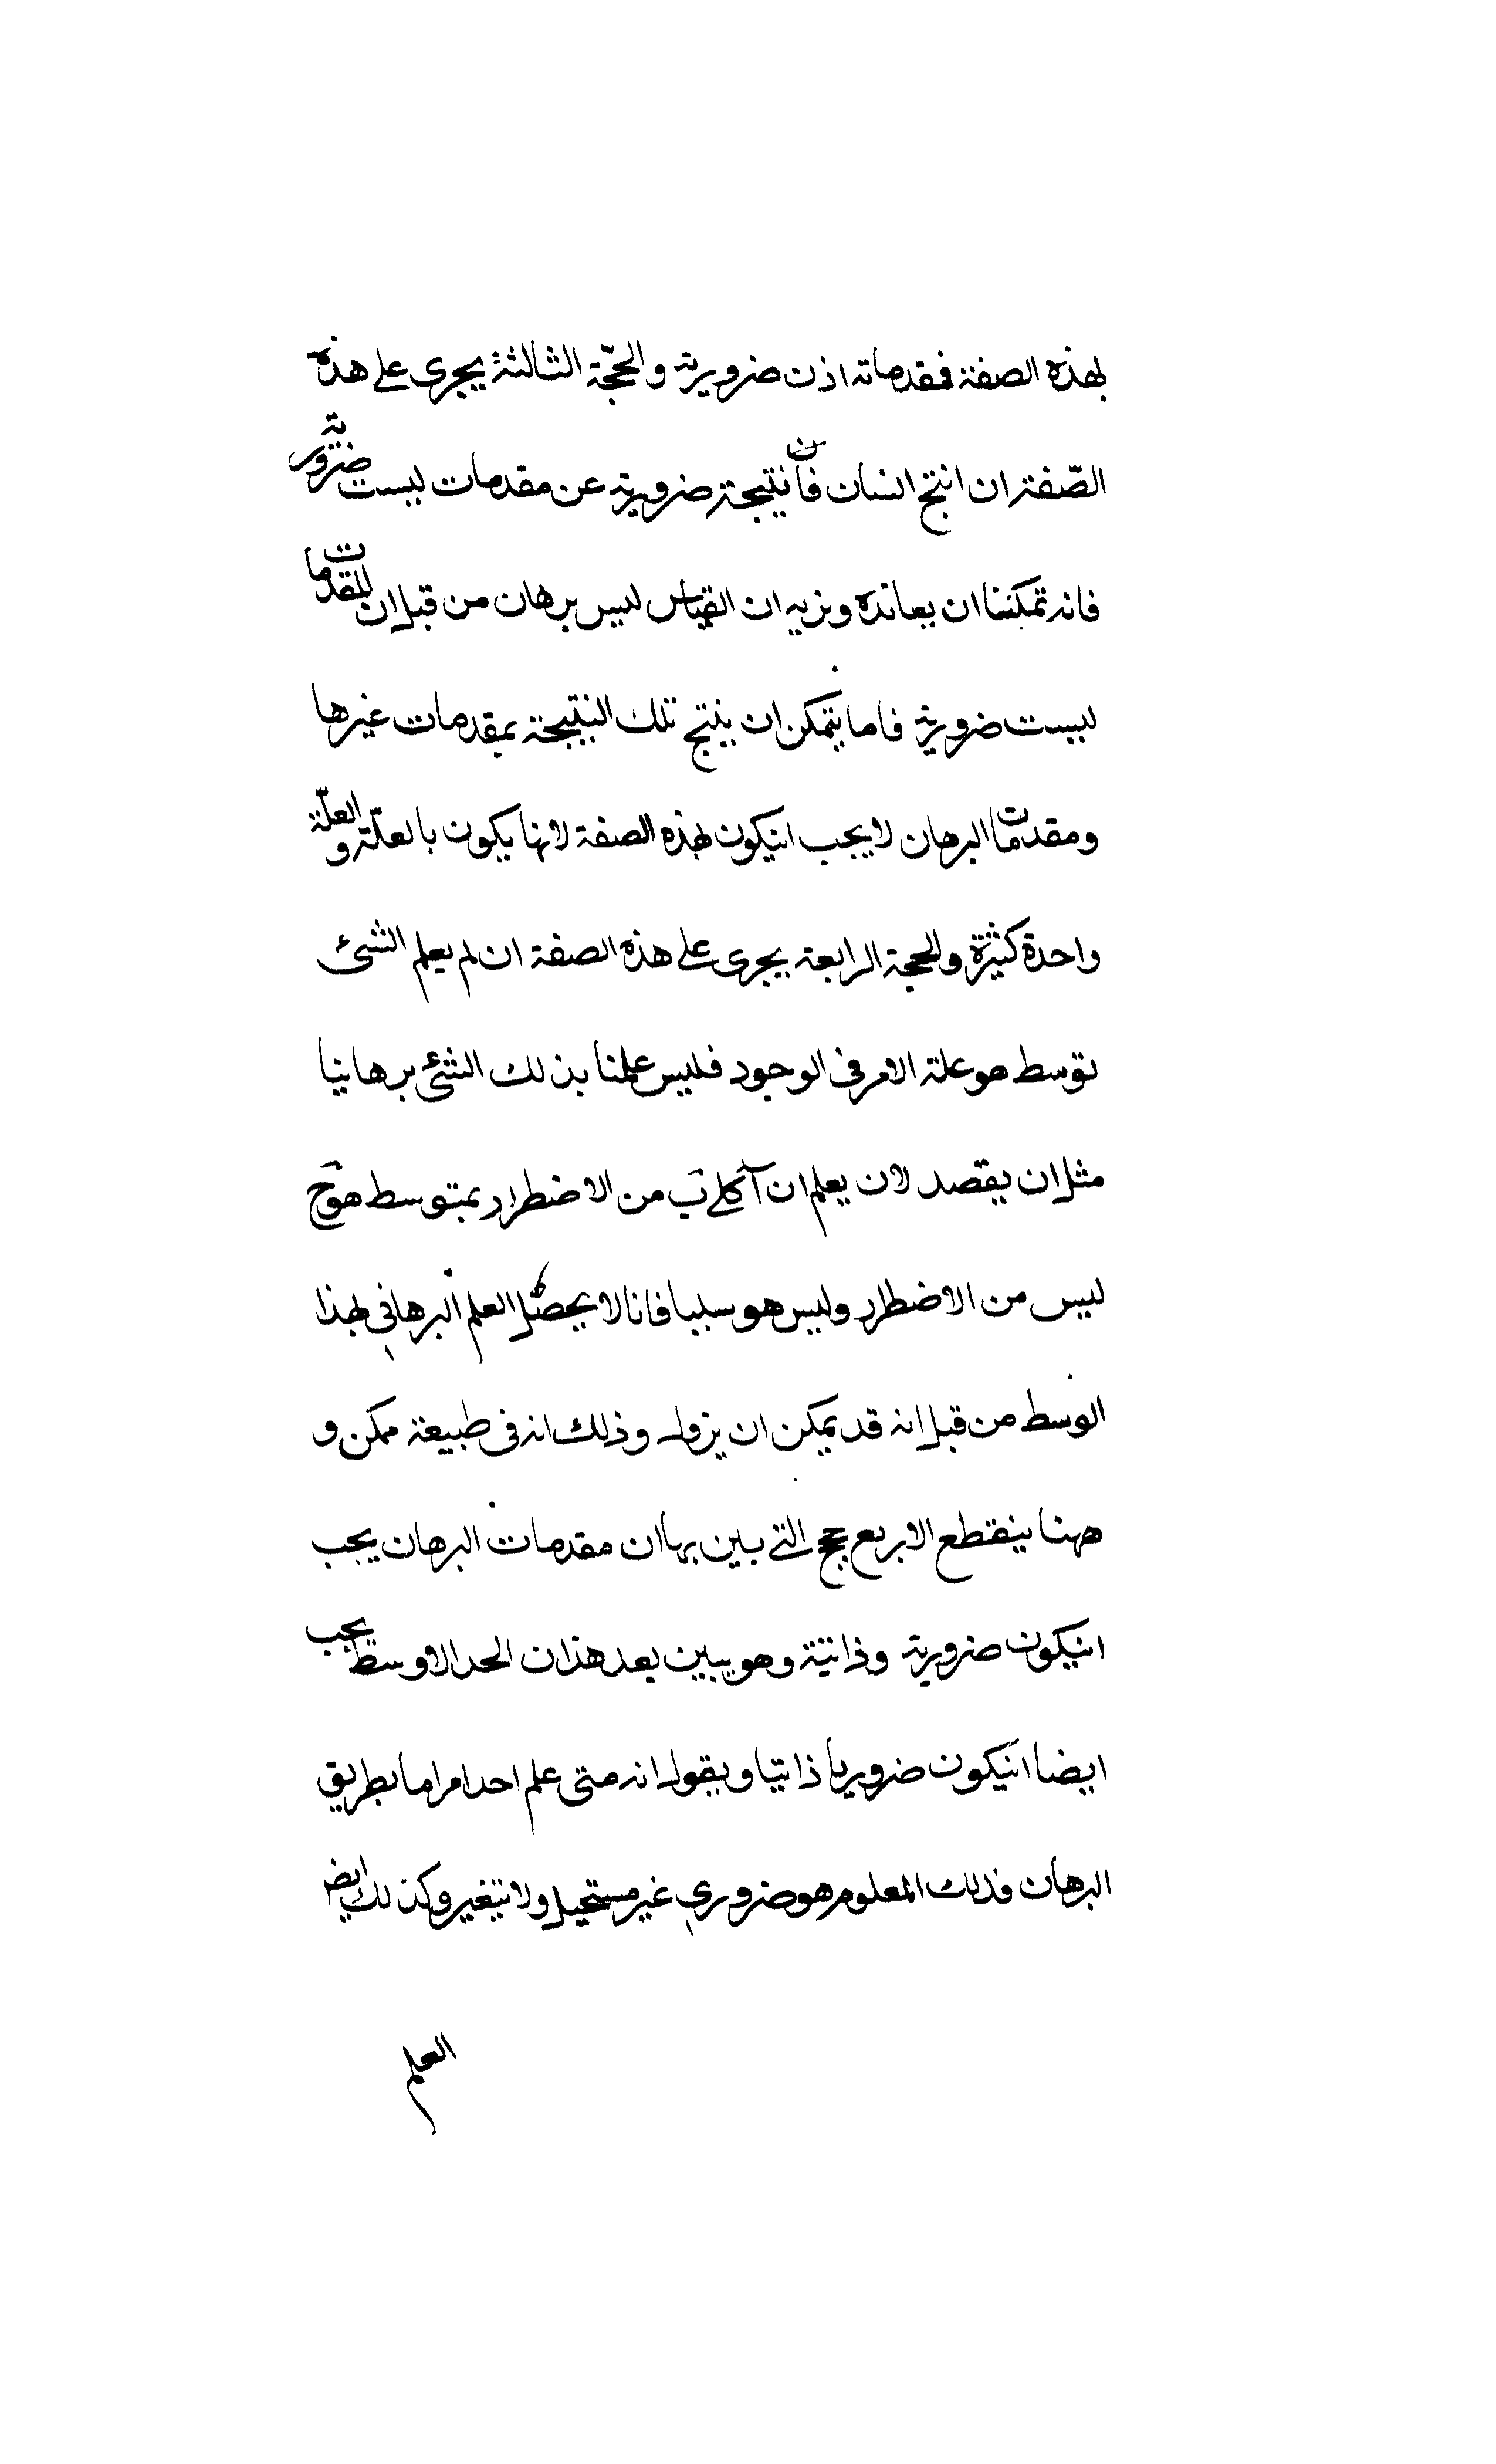 بهذه الصفة فمقدماته اذن ضرورية والحجّة الثالثة يجرى على هذه
الصّفة ان انتج انسان فان نتيجة ضرورية عن مقدمات ليست ضرورية
فانه تمكننا ان يعانده ونريه ان القياس ليس برهان من قبل ان المقدمات
ليست ضرورية فاما يتمكن ان ينتج تلك النتيجة بمقدمات غيرها
ومقدمات البرهان لا يجب انيكون بهذه الصفة لانها يكون بالعلّة والعلّة
واحدة كثيرة والحجة الرابعة يجرى على هذه الصفة ان لم يعلم الشئ
توسط هو علة الامر فى الوجود فليس علمنا بذلك الشئ برهانيا
مثل ان يقصد لان يعلم ان آ كلے ب من الاضطرار بمتوسط هو ج
ليس من الاضطرار وليس هو سببا فانا لا يحصل العلم البرهانى بهذا
الوسط من قبل انه قد يمكن ان يزول وذلك انه فى طبيعة ممكن و
ههنا ينقطع الاربع حجج التى بين بها ان مقدمات البرهان يجب
انيكون ضرورية وذاتية وهو يبين بعد هذا ان الحد الاوسط يجب
ايضا انيكون ضروريا ذاتيا ويقول انه متى علم احد امرا ما بطريق
البرهان فذلك المعلوم هو ضرورى غير مستحيل ولا يتغير وكذلك ايض
العلم